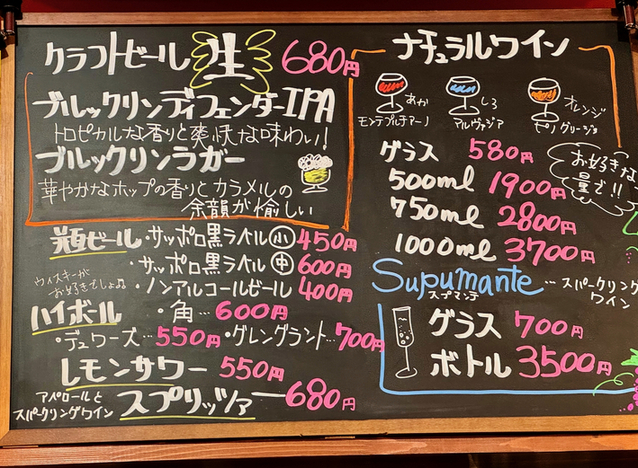 クラフトビール 生 680円
ブルックリンディフェンダーIPA
トロピカルな香りと爽快な味わい!
ブルックリンラガー
華やかなホップの香りとカラメルの
余韻が愉しい
ビール・サッポロ黒ラベル 小 450円
・サッポロ黒ラベル 中 600円
・ノンアルコールビール 400円
ウィスキーが
お好きでしょ
ハイボール
・角… 600円
・デュワーズ… 550円 ・グレングラント… 700円
レモンサワー 550円
アペロールと
スパークリングワイン
スプリッツァ 680円
ナチュラルワイン
あか
モンテプルチアーノ
しろ
アルヴァジア
オレンジ
ピノグリージョ
グラス 580円
500ml 1900円
750ml 2800円
1000ml 3700円
お好きな
量で!!
Supumante… スパークリング
ワイン
スプマンテ
グラス 700円
ボトル 3500円